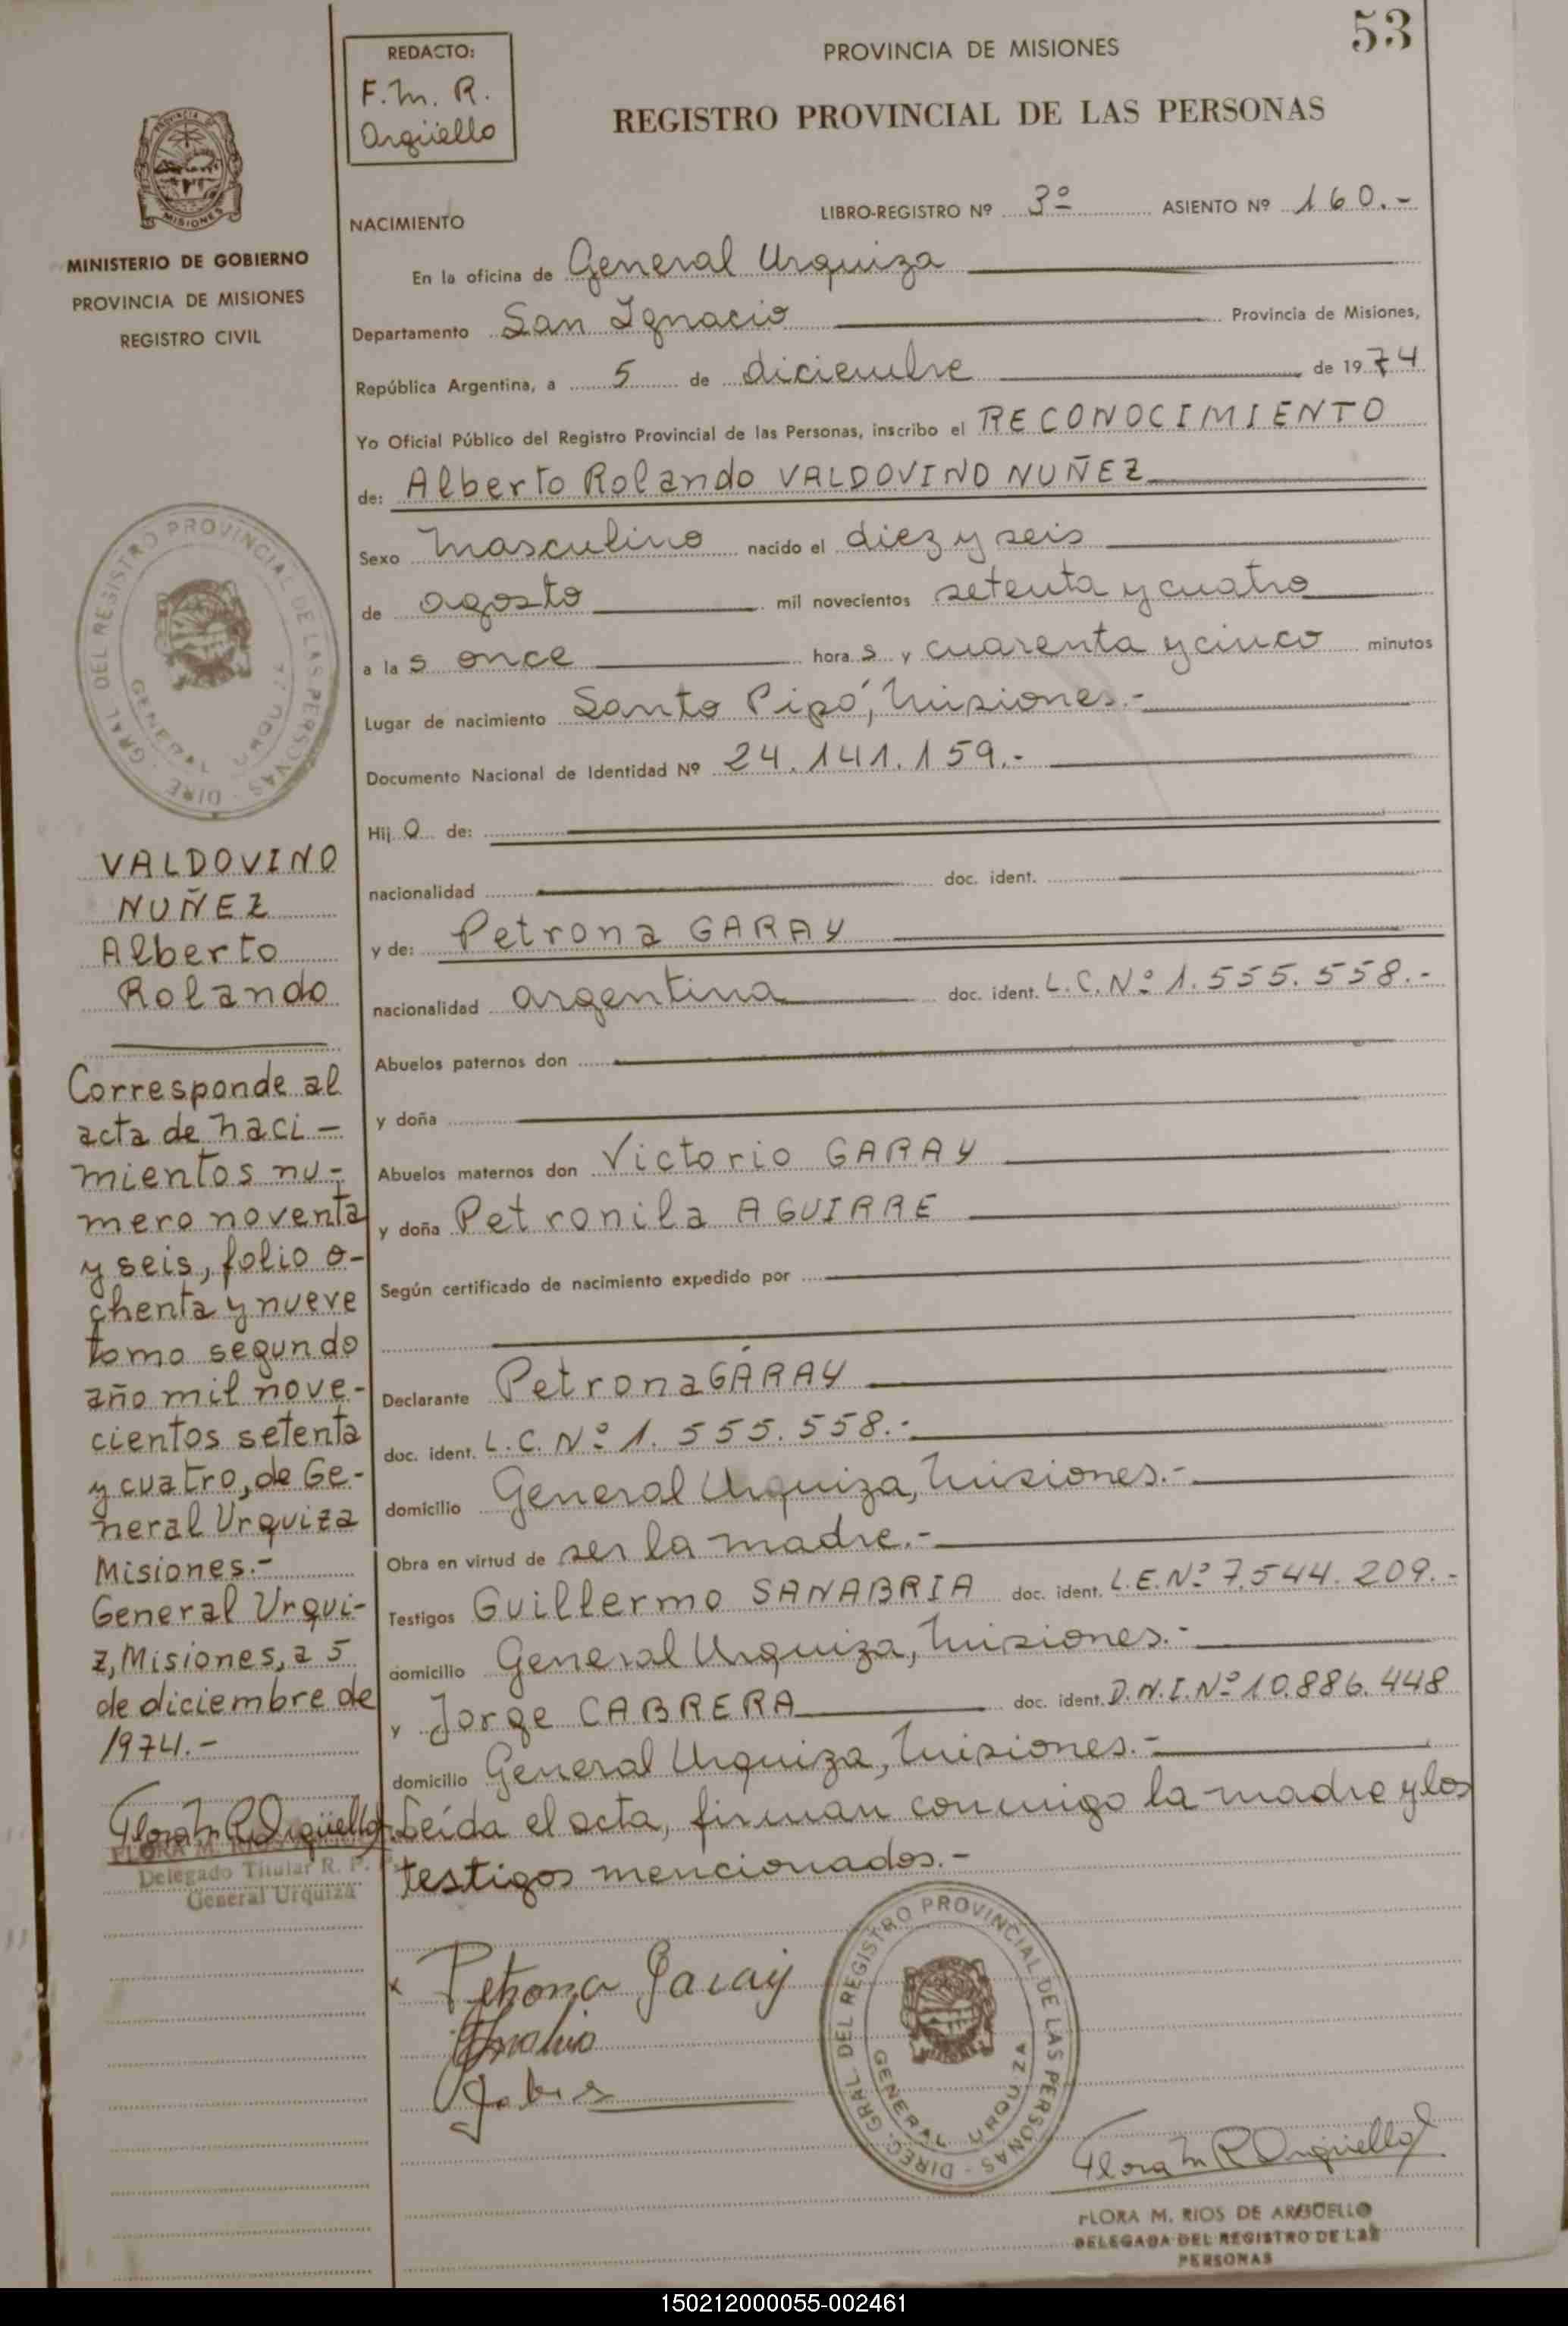 53
REDACTO:
F. M. R.
Argüello
PROVINCIA DE MISIONES
REGISTRO PROVINCIAL DE LAS PERSONAS
MISIONES
MINISTERIO DE GOBIERNO
PROVINCIA DE MISIONES
REGISTRO CIVIL
NACIMIENTO
LIBRO-REGISTRO Nº 3º ASIENTO Nº 160.-
En la oficina de General Urquiza
Departamento San Ignacio Provincia de Misiones,
República Argentina, a 5 de diciembre de 1974
Yo Oficial Público del Registro Provincial de las Personas, inscribo el RECONOCIMIENTO
de: Alberto Rolando VALDOVINO NUÑEZ
Sexo masculino nacido el diez y seis
de agosto mil novecientos setenta y cuatro
a las once horas y cuarenta y cinco minutos
Lugar de nacimiento Santo Pipó, Misiones.-
Documento Nacional de Identidad Nº 24.141.159.-
Hijo de:
nacionalidad doc. ident.
y de: Petrona GARAY
nacionalidad argentina doc. ident. L.C.Nº 1.555.558.-
Abuelos paternos don
y doña
Abuelos maternos don Victorio GARAY
y doña Petronila AGUIRRE
Según certificado de nacimiento expedido por
Declarante Petrona GARAY
doc. ident. L.C.Nº 1.555.558.-
domicilio General Urquiza, Misiones.-
Obra en virtud de ser la madre.-
Testigos Guillermo SANABRIA doc. ident. L.E.Nº 7.544.209.-
domicilio General Urquiza, Misiones.-
y Jorge CABRERA doc. ident. D.N.I.Nº 10.886.448
domicilio General Urquiza, Misiones.-
Leída el acta, firman conmigo la madre y los
testigos mencionados.-
x Petrona Garay
DIREC. GRAL. DEL REGISTRO PROVINCIAL DE LAS PERSONAS
GENERAL URQUIZA
Flora M R Argüello
FLORA M. RIOS DE ARGÜELLO
DELEGADA DEL REGISTRO DE LAS
PERSONAS
DIREC. GRAL. DEL REGISTRO PROVINCIAL DE LAS PERSONAS
GENERAL URQUIZA
VALDOVINO
NUÑEZ
Alberto
Rolando
Corresponde al
acta de naci-
mientos nu-
mero noventa
y seis, folio o-
chenta y nueve
tomo segundo
año mil nove-
cientos setenta
y cuatro, de Ge-
neral Urquiza
Misiones.-
General Urqui-
z, Misiones, a 5
de diciembre de
1974.-
Flora M R Argüello
FLORA M. RIOS
Delegado Titular R. P.
General Urquiza
150212000055-002461